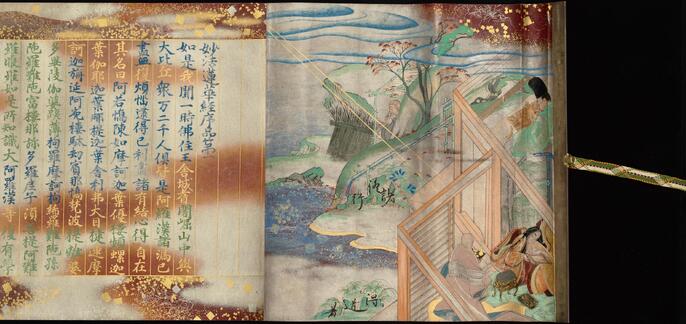 妙法蓮華經序品第一
如是我聞一時佛住王舍城耆闍崛山中與
大比丘衆万二千人俱皆是阿羅漢諸漏已
盡無復煩惱逮得己利盡諸有結心得自在
其名曰阿若憍陳如摩訶迦葉優樓頻螺迦
葉伽耶迦葉那提迦葉舍利弗大目揵連摩
訶迦旃延阿㝹樓馱劫賓那憍梵波提離婆
多畢陵伽婆蹉薄拘羅摩訶拘絺羅難陀孫
陀羅難陀富樓那彌多羅尼子須菩提阿難
羅睺羅如是衆所知識大阿羅漢等復有學